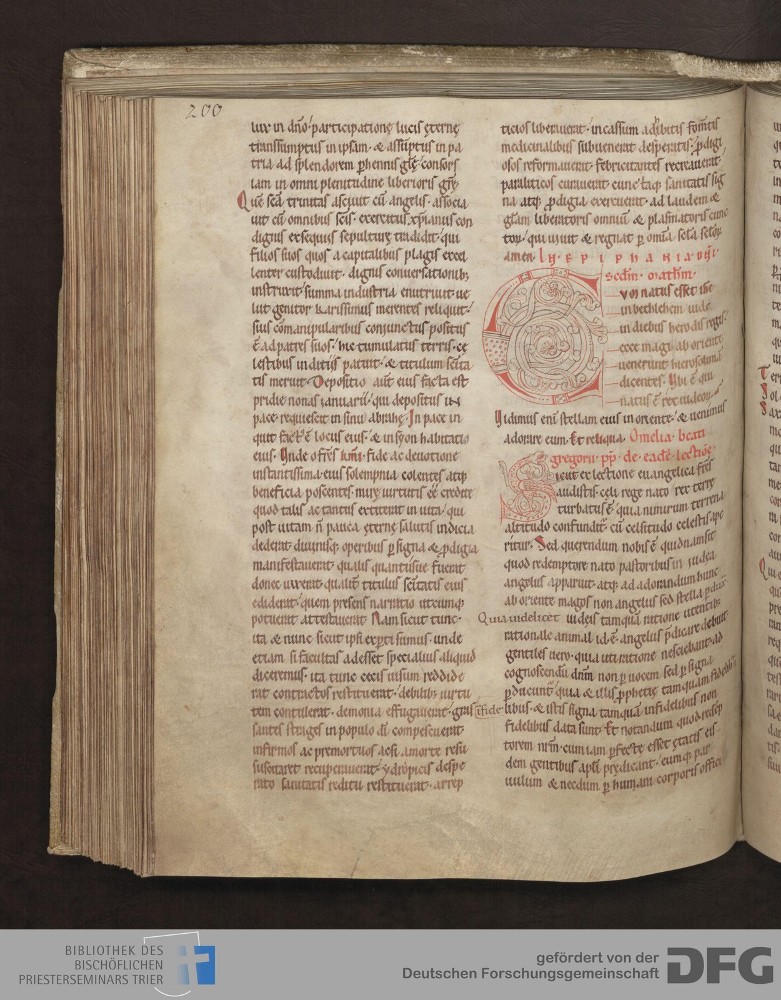 200
lux in dn̄o participatione lucis ęternę
transsumptus in ipsam · & assūptus in pa
tria ad splendorem ꝑhennis glę̄ consors
iam in omni plenitudine liberioris grę̄
Quē scā trinitas ascivit cū angelis · associa
vit cū omnibus scīs · exercitus xp̄ianus con
dignis exsequiis sepulturę tradidit · qui
filios suos quos a capitalibus plagis excel
lenter custodivit · dignis conversationib;
instruxit summa industria enutrivit · ue
lut genitor karissimus merentes reliquit ·
suis comanipularibus coniunctus positus
ē ad patres suos · hic tumulatus terris · cę
lestibus inditiis patuit · & titulum scīta
tis meruit · Depositio aut̄ eius facta est
pridie nonas ianuarii · qui depositus in
pace requiescit in sinu abrahę · In pace in
quit factꝰ ē locus eius · & in syon habitatio
eius · Unde o fr̄s kmi · fide ac devotione
instantissima eius solempnia colentes atq;
beneficia poscentes · mirę virtutis eē credite
quod talis ac tantus extiterit in vita · qui
post vitam n̄ pauca ęternę salutis indicia
dederat · divinisq; operibus ꝑ signa & ꝓdigia
manifestaverat · qualis quantusve fuerat
donec viveret · qualit̄ titulus scītatis eius
ediderat · quem presens narratio utcumq;
potuerat attestaverat · Nam sicut tunc ·
ita & nunc sicut ipsi exꝑti sumus · unde
etiam si facultas adesset specialius aliquid
diceremus · ita tunc cecis visum reddide
rat · contractos restituerat · debilib; virtu
tem contulerat · demonia effugaverat · gras
santes strages in populo dī compescuerat ·
infirmos ac premortuos acsi a morte resu
suscitaret recuperaverat · ydropicis despe
rato sanitatis reditu restituerat · arrep
ticios liberaverat · in cassum adhibitis fom̄tis
medicinalibus subvenerat desperatis · ꝓdigi
osos reformaverat · febricitantes recreaverat ·
paraliticos curaverat · tunc itaq; sanitatis sig
na atq; ꝓdigia exercuerat · ad laudem &
glā̄m liberatoris omniū & plasmatoris cunc
torꝝ · qui vivit & regnat ꝑ omīa scl̄a scl̄oꝝ
amen · IN · EPIPHANIA DN̄I ·
secdm̄ · mathm̄ ·
CVm natus esset ihc
in bethleem iude
in diebus herodis regis ·
ecce magi ab oriente
venerunt hierosolima
dicentes · Ubi ē qui
natus ē rex iudeoꝝ
Vidimus enī stellam eius in oriente · & venimus
adorare eum · Et reliqua · Omelia · beati
gregorii · pp̄ · de · eadē · lectiōe ·
Sicut ex lectione evangelica fr̄s
audistis · celi rege nato rex terrę
turbatus ē · quia nimirum terrena
altitudo confunditr̄ · cū celsitudo celestis ape
ritur · Sed querendum nobis ē quidnam sit
quod redemptore nato pastoribus in iudea
angelus apparuit · atq; ad adorandum hunc
ab oriente magos non angelus sed stella ꝑduxit ·
Quia videlicet iudeis tamquā ratione utentib;
rationale animal id ē angelus p̄dicare debuit ·
gentiles vero · quia uti ratione nesciebant · ad
cognoscendū dnm̄ non ꝑ vocem sed ꝑ signa
ꝑducunt̄ · quia & illis ꝓphetię tamquam fidelib;
infide libus · & istis signa tamquā infidelibus non
fidelibus data sunt · Et notandum quod redēp
torem nr̄m · cum iam ꝑfecte esset ętatis eis
dem gentibus apl̄i prędicant · eumq; par
vulum & necdum ꝑ humani corporis officiū
BIBLIOTHEK DES
BISCHÖFLICHEN
PRIESTERSEMINARS TRIER
gefördert von der
Deutschen Forschungsgemeinschaft
DFG